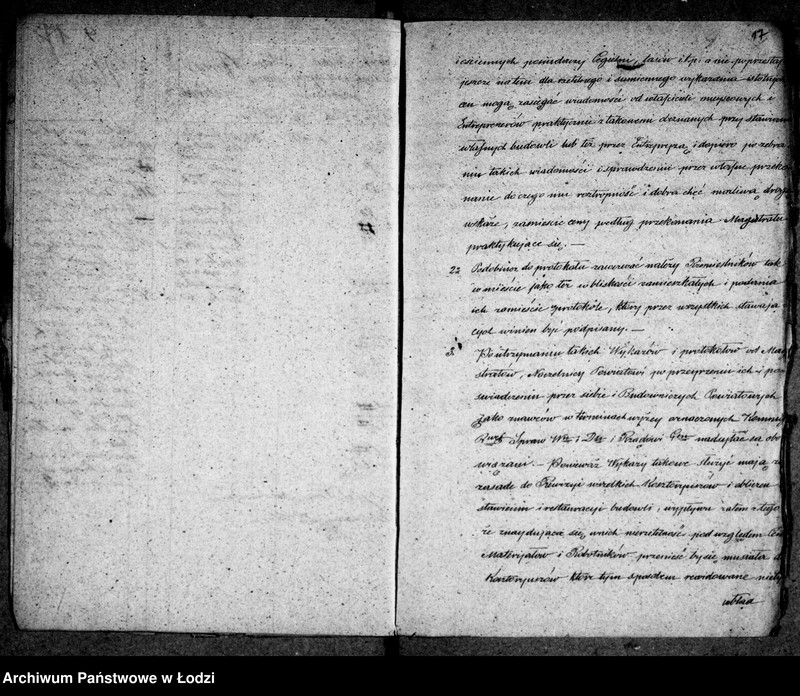 17
icziennych posiadaczy Cegielni, lasów i t.p. a nie poprzestaj
jeszcze na tem dla rzetelnego i sumiennego wykazania
cen mogą zasięgać wiadomości od właścicieli miejscowych i
Entreprenerów praktycznie z takowemi doznanych przy stawianiu
własnych budowli lub też przez Entrepryzą i dopiero po zebra
niu takich wiadomości i sprawdzeniu przez własne przeko
nanie do czego mu roztropność i dobra chęć możliwą drogę
wskaże, zamieście ceny według przekonania Magistratu
praktykujące się. —
22 Podobnież do protokułu zawezwać należy Rzemieślników tak
w mieście jako też w bliskości zamieszkałych i podania
ich zamieścić w protokóle, który przez wszystkich stawają
cych winien być podpisany. —
3 Po otrzymaniu takich Wykazów i protokołów od Magi
stratów, Naczelnicy Powiatowi po przejrzeniu ich i po
świadczeniu przez siebie i Budowniczych Powiatowych
jako znawców w terminach wyżej oznaczonych Kommis
Rząd Spraw Wew i Duch i Rządowi Gub nadsyłać są obo
wiązani. — Ponieważ Wykazy takowe służyć mają za
zasadę do Rewizyi wszelkich Kosztorysów i
stawieniu i restauracyi budowli, wypływa zatem z tego
że znajdująca się w nich nierzetelność pod względem Cen
Materyałów i Robotników przenieść by się musiała do
Kosztorysów które tym sposobem rewidowane
Archiwum Państwowe w Łodzi